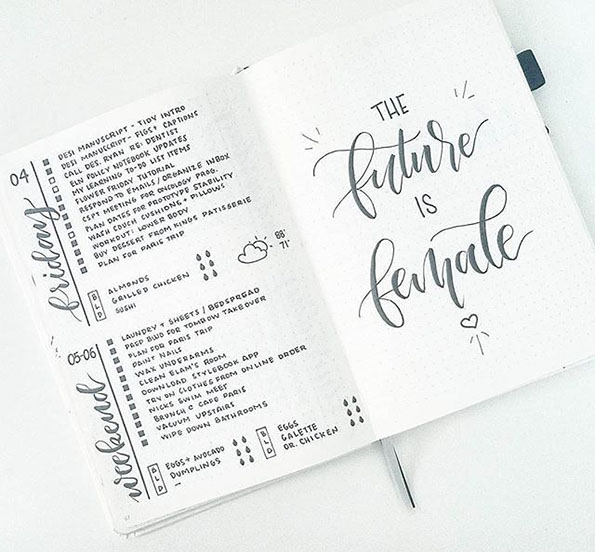 04
friday
DESI MANUSCRIPT - TIDY INTRO
DESI MANUSCRIPT - FIGS + CAPTIONS
CALL DES. RYAN RE: DENTIST
ELN POLICY NOTEBOOK UPDATES
MY LEARNING TO-DO LIST ITEMS
FLOWER FRIDAY TUTORIAL
RESPOND TO EMAILS / ORGANIZE INBOX
CSPT MEETING FOR ONCOLOGY PROG.
PLAN DATES FOR PROTOTYPE STABILITY
WASH COUCH CUSHIONS + PILLOWS
WORKOUT: LOWER BODY
BUY DESSERT FROM KINGS PATISSERIE
PLAN FOR PARIS TRIP
88°
71°
B
L
D
ALMONDS
GRILLED CHICKEN
SUSHI
05-06
weekend
LAUNDRY + SHEETS / BEDSPREAD
PREP BUJO FOR TOMBOW TAKEOVER
PLAN FOR PARIS TRIP
PAINT NAILS
WAX UNDERARMS
CLEAN ELAM'S ROOM
DOWNLOAD STYLEBOOK APP
TRY ON CLOTHES FROM ONLINE ORDER
NICKS SWIM MEET
BRUNCH @ CAFE PARIS
VACUUM UPSTAIRS
WIPE DOWN BATHROOMS
B
L
D
EGGS + AVOCADO
DUMPLINGS
–
B
L
D
EGGS
GALETTE
OR. CHICKEN
THE
future
IS
female